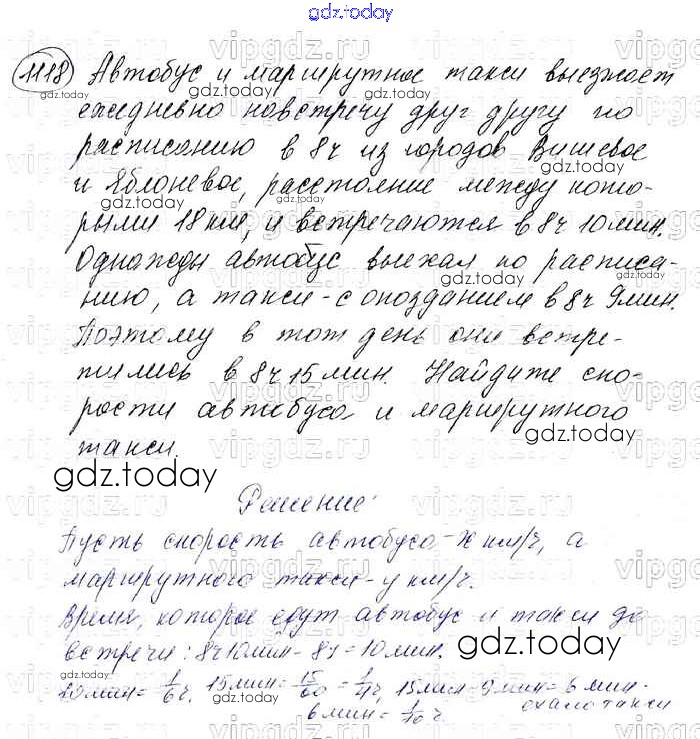 gdz.today
1118 Автобус и маршрутное такси выезжает
ежедневно навстречу друг другу по
расписанию в 8ч из городов Вишевое
и Яблоневое, расстояние между кото-
рыми 18 км, и встречаются в 8ч 10мин.
Однажды автобус выехал по расписа-
нию, а такси - с опозданием в 8ч 9мин.
Поэтому в тот день они встре-
тились в 8ч 15 мин. Найдите ско-
рости автобуса и маршрутного
такси.
gdz.today
Решение:
Пусть скорость автобуса - x км/ч, а
маршрутного такси - y км/ч.
Время, которое едут автобус и такси до
встречи: 8ч10мин - 8ч = 10мин.
10мин = 1/6 ч, 15мин = 15/60 = 1/4 ч, 15мин - 9мин = 6мин -
ехало такси
6мин = 1/10 ч.